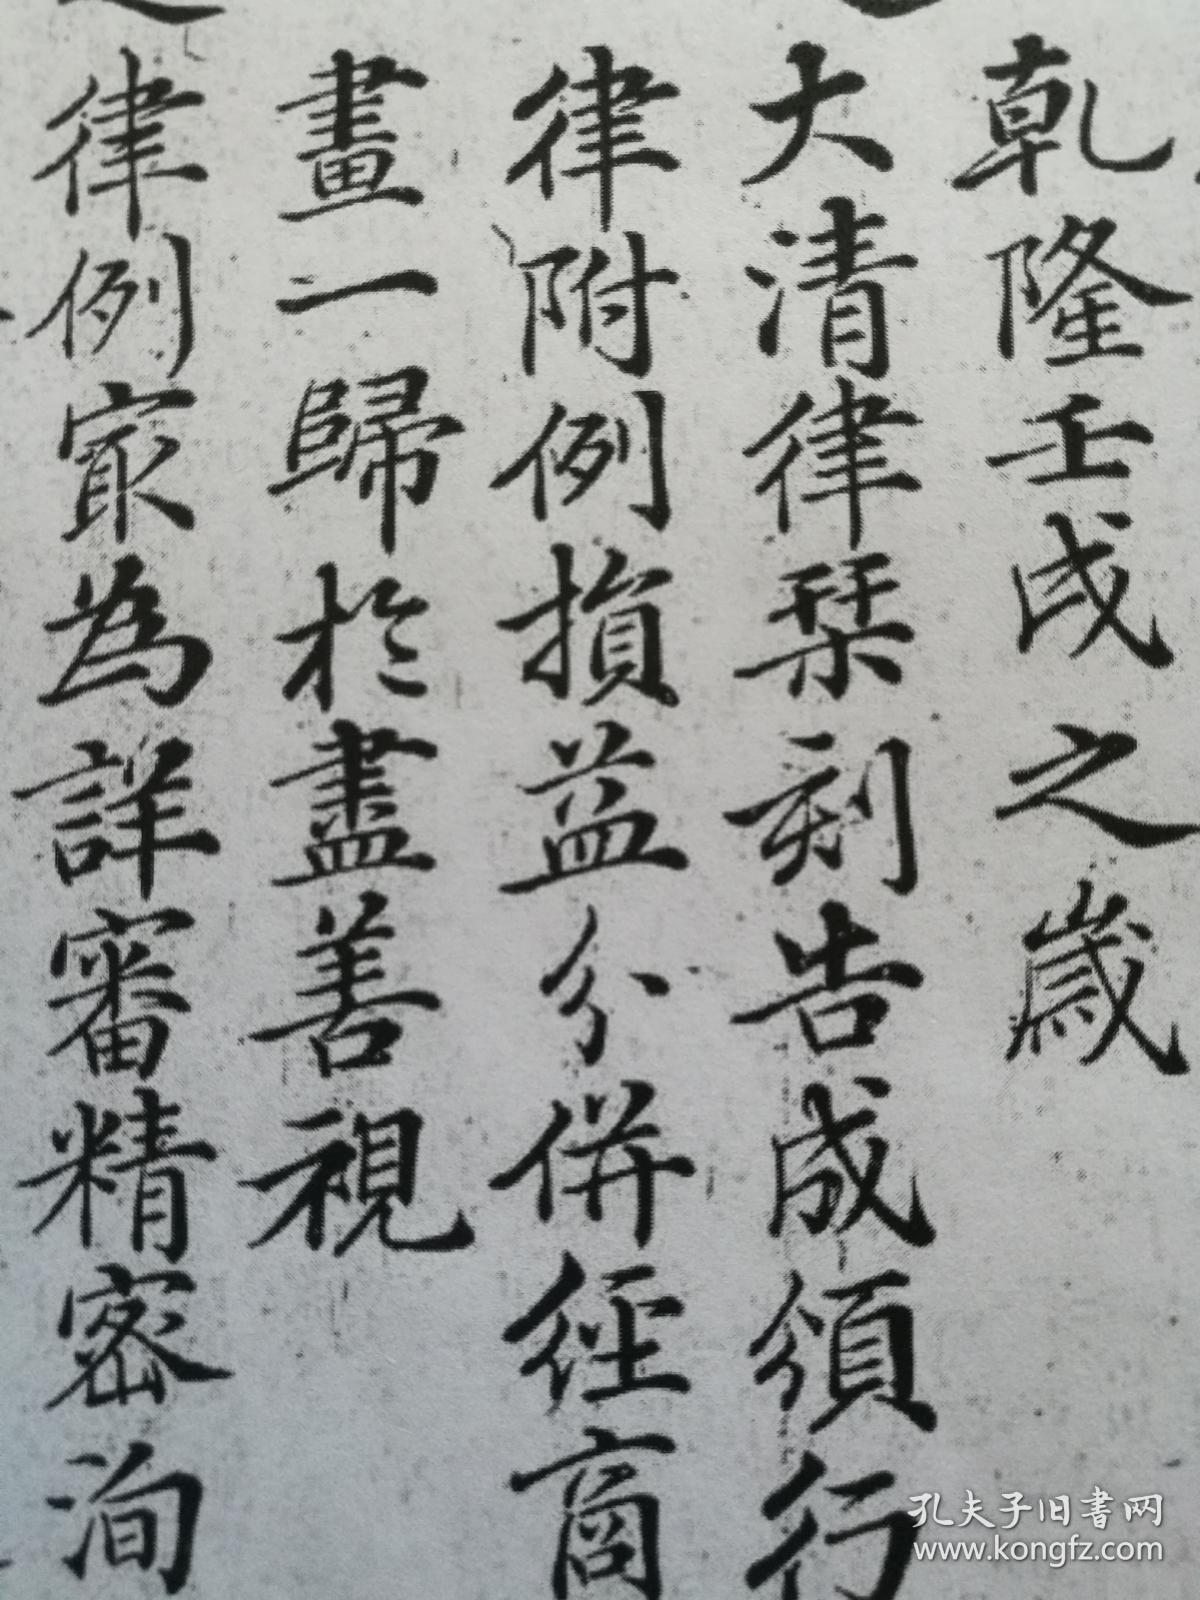 乾隆壬戌之歲
大清律栞刻告成頒行
律附例損益分併經商
畫一歸於盡善視
律例㝡為詳審精密洵
孔夫子旧书网
www.kongfz.com